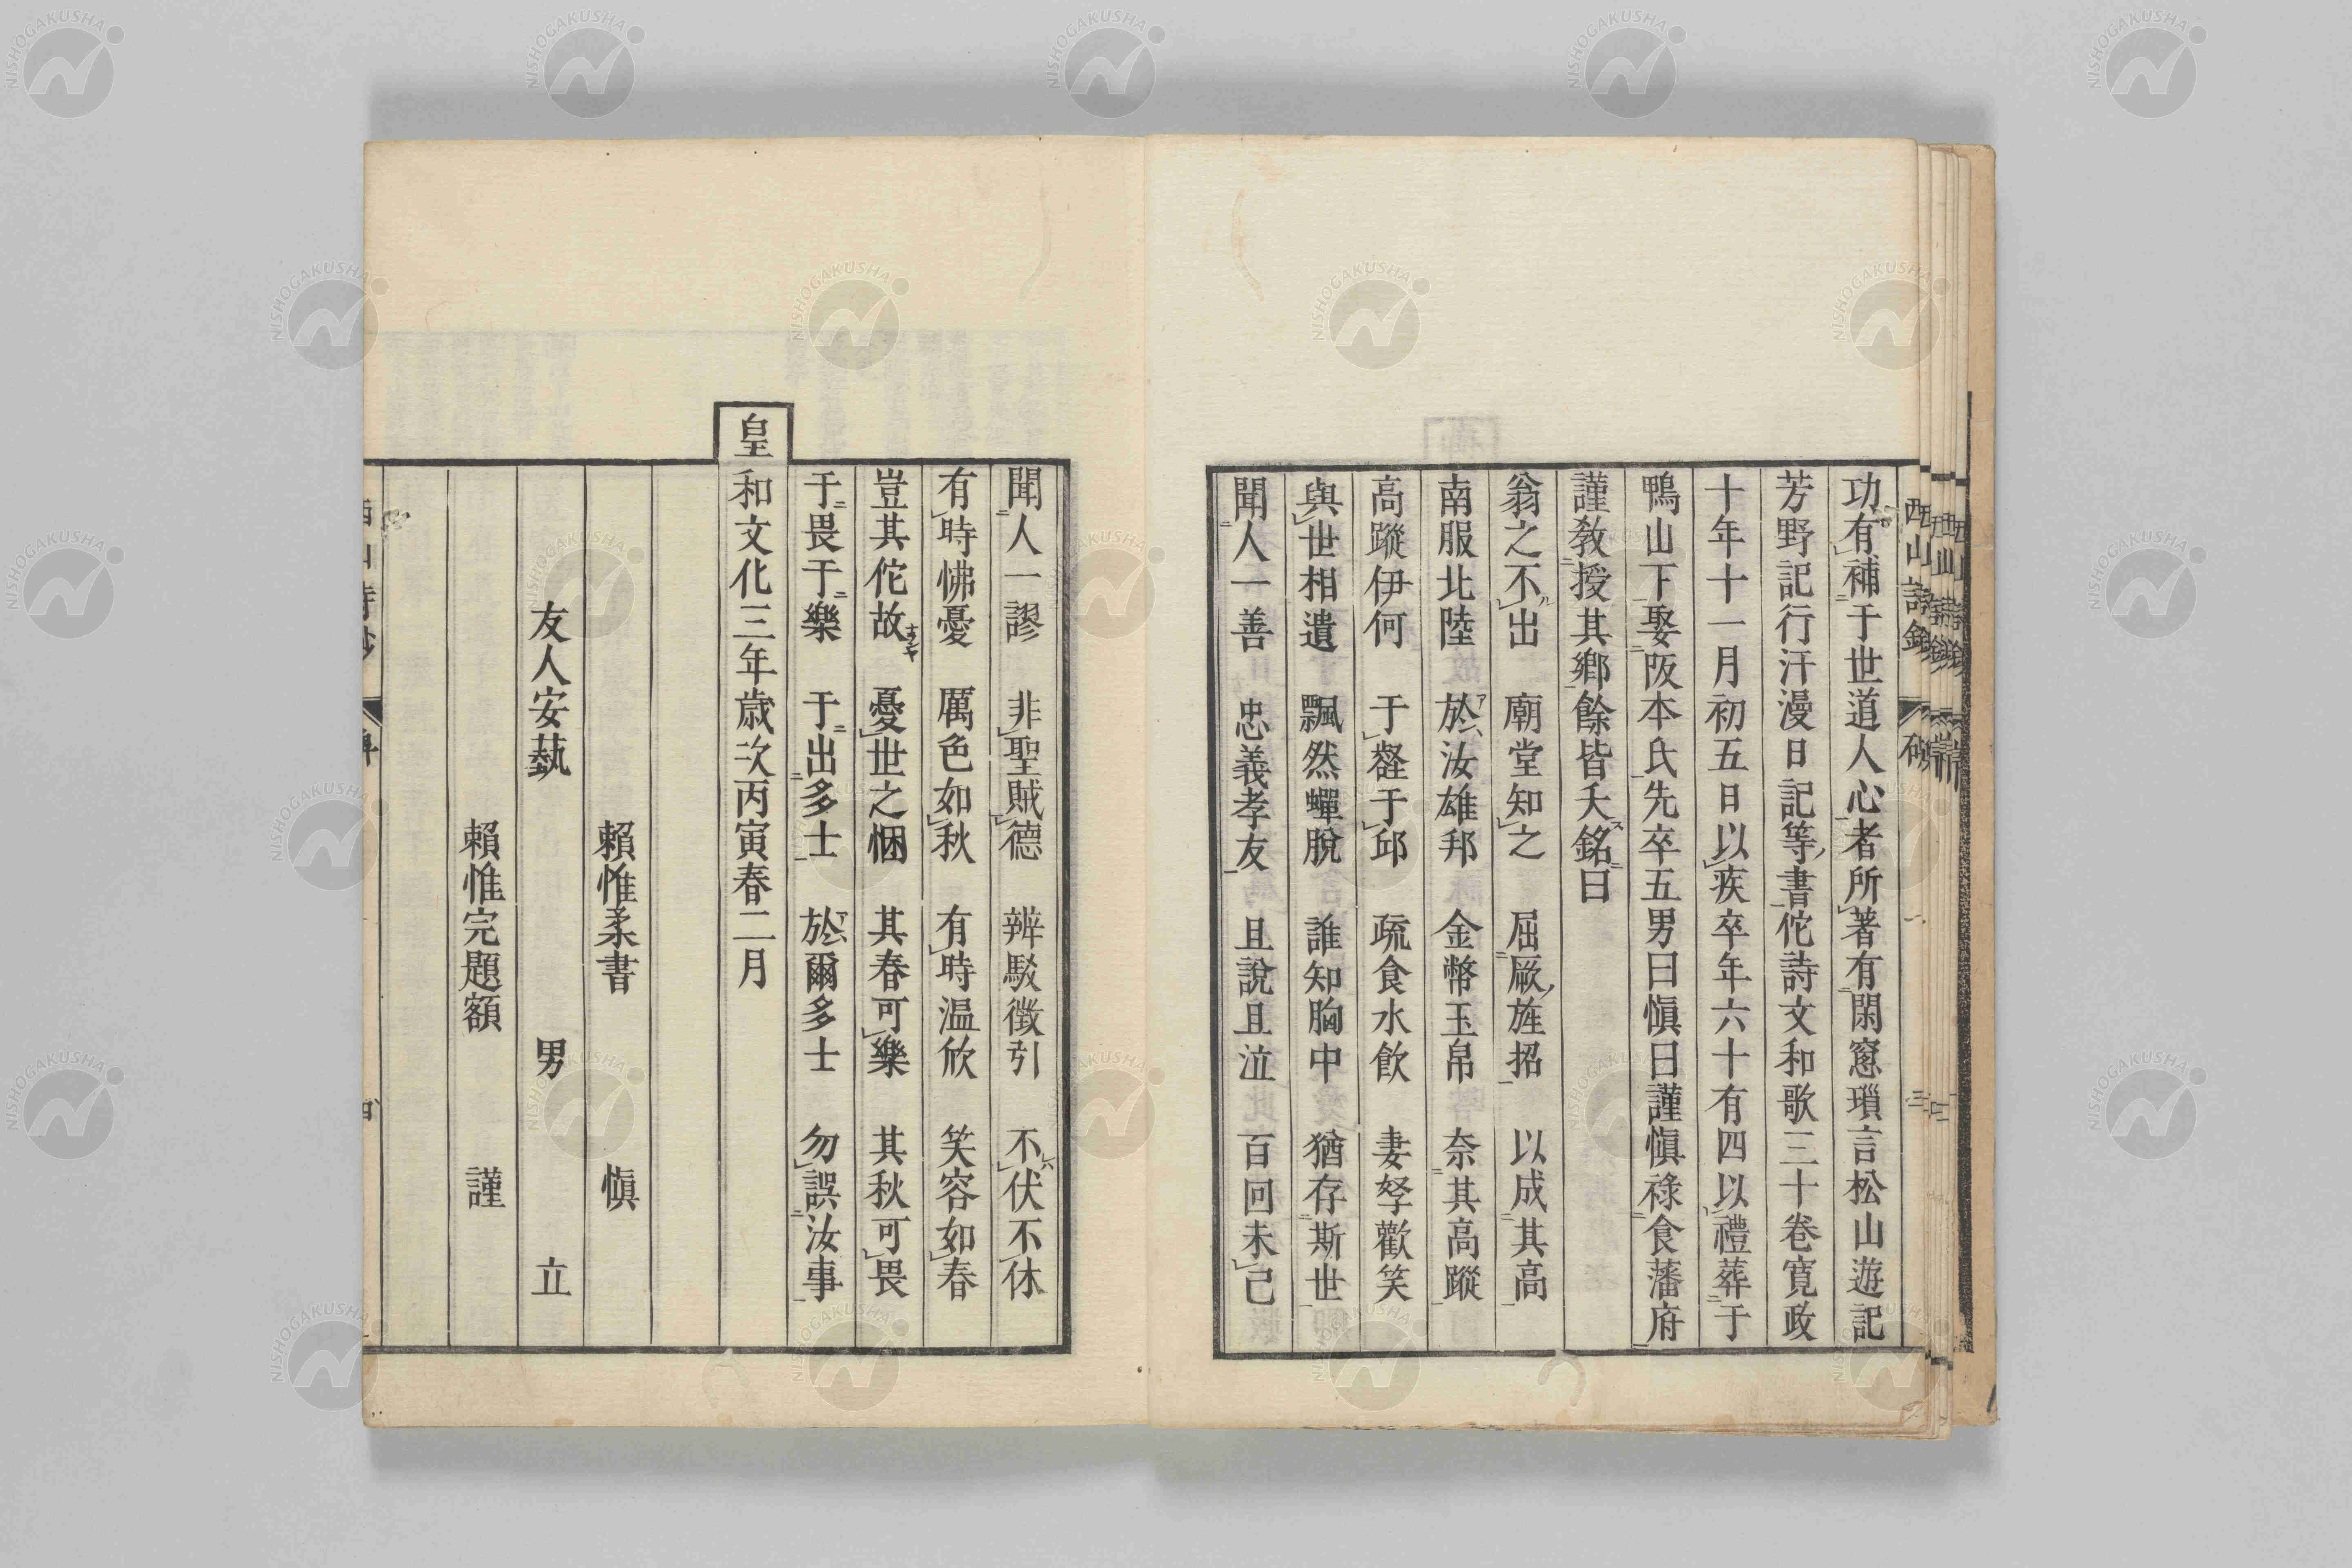 功有補于世道人心者所著有閑窓瑣言松山遊記
芳野記行汗漫日記等書佗詩文和歌三十卷寛政
十年十一月初五日以疾卒年六十有四以禮葬于
鴨山下娶阪本氏先卒五男曰愼曰謹愼祿食藩府
謹敎授其鄕餘皆夭銘曰
翁之不出 廟堂知之 屈厥旌招 以成其高
南服北陸 於汝雄邦 金幣玉帛 奈其高蹤
高蹤伊何 于壑于邱 疏食水飮 妻孥歡笑
與世相遺 飄然蟬脫 誰知胸中 猶存斯世
聞人一善 忠義孝友 且說且泣 百回未已
聞人一謬 非聖賊德 辨駁徵引 不伏不休
有時怫憂 厲色如秋 有時温欣 笑容如春
豈其佗故 憂世之悃 其春可樂 其秋可畏
于畏于樂 于出多士 於爾多士 勿誤汝事
皇和文化三年歳次丙寅春二月
賴惟柔書 愼
友人安藝 男 立
賴惟完題額 謹